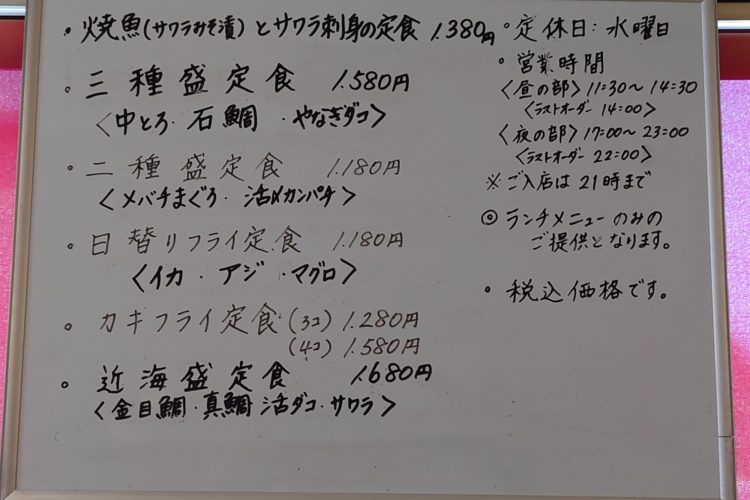 ・焼魚(サワラみそ漬)とサワラ刺身の定食 1.380円
・三種盛定食 1.580円
〈中とろ・石鯛・やなぎダコ〉
・二種盛定食 1.180円
〈メバチまぐろ・活〆カンパチ〉
・日替りフライ定食 1.180円
〈イカ・アジ・マグロ〉
・カキフライ定食(3コ) 1.280円
(4コ) 1.580円
・近海盛定食 1.680円
〈金目鯛・真鯛 活ダコ・サワラ〉
・定休日:水曜日
・営業時間
〈昼の部〉11:30〜14:30
〈ラストオーダー 14:00〉
〈夜の部〉17:00〜23:00
〈ラストオーダー 22:00〉
※ご入店は21時まで
◎ランチメニューのみの
ご提供となります。
・税込価格です。